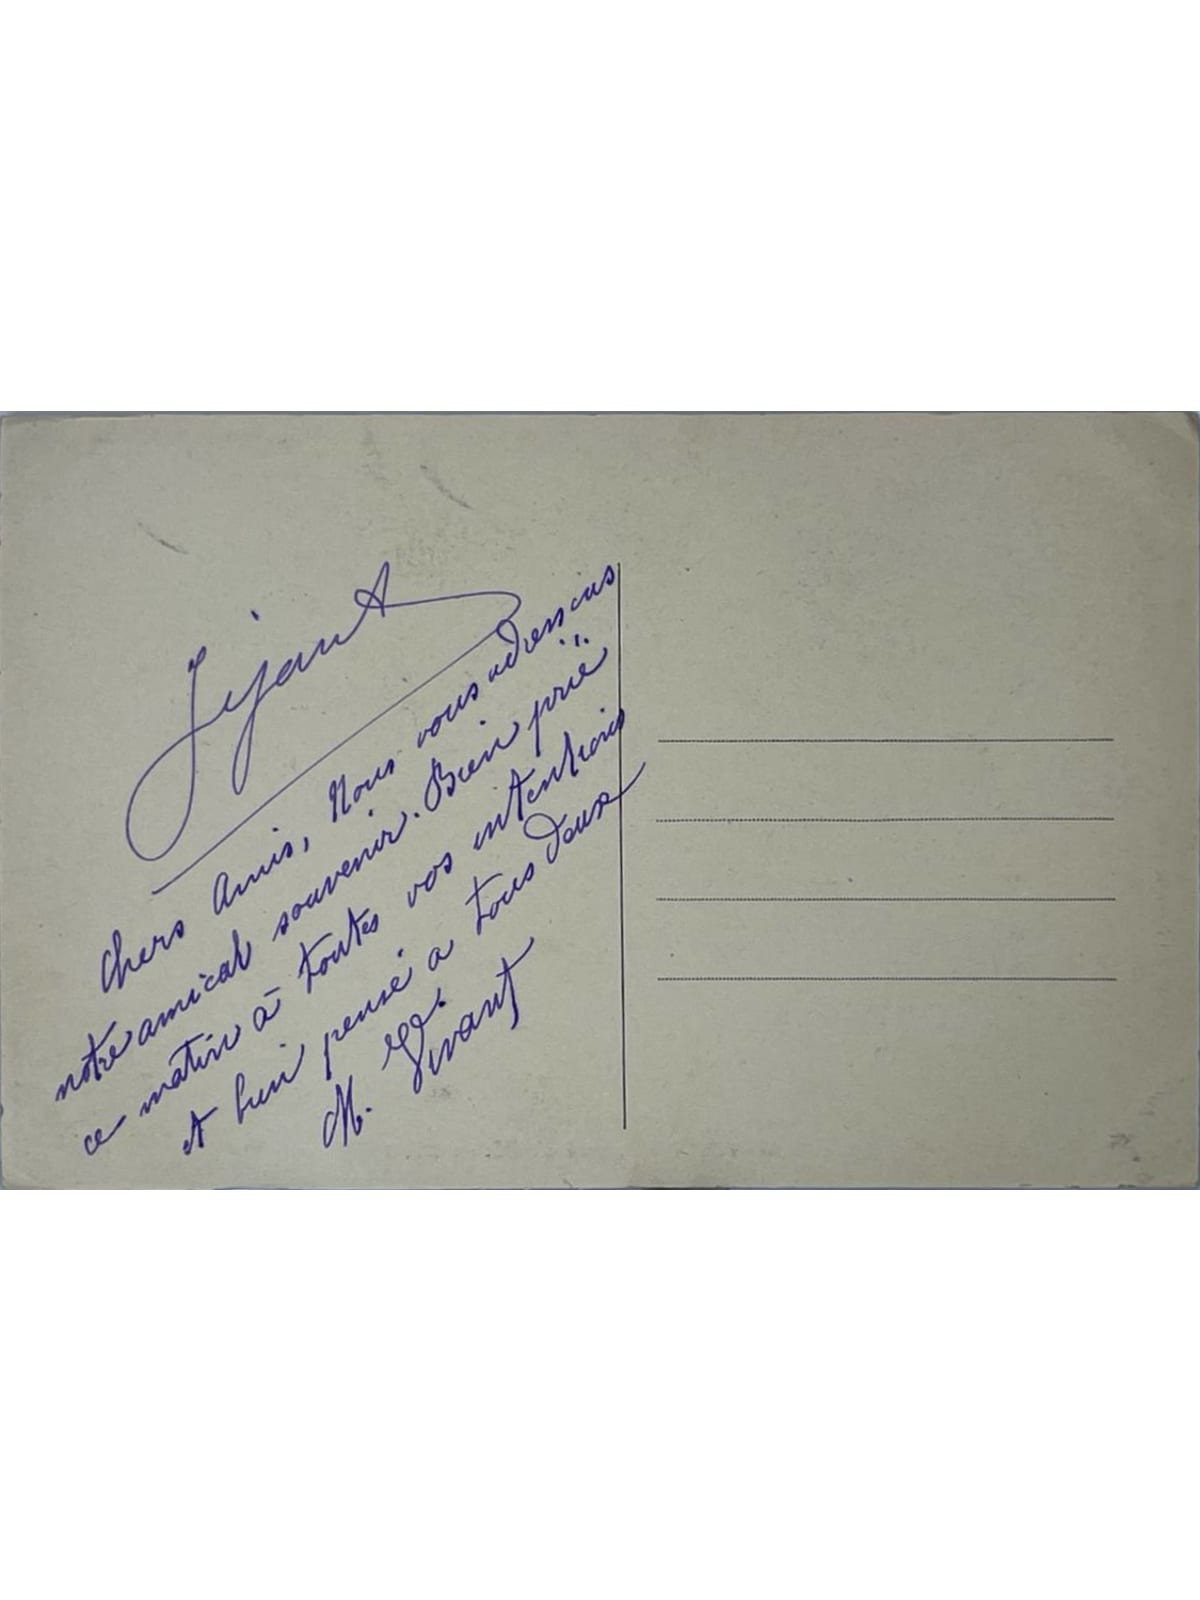 Chers Amis, Nous vous adressons
notre amical souvenir. Bien prié
ce matin à toutes vos intentions
et bien pensé à tous deux
M. Vivant